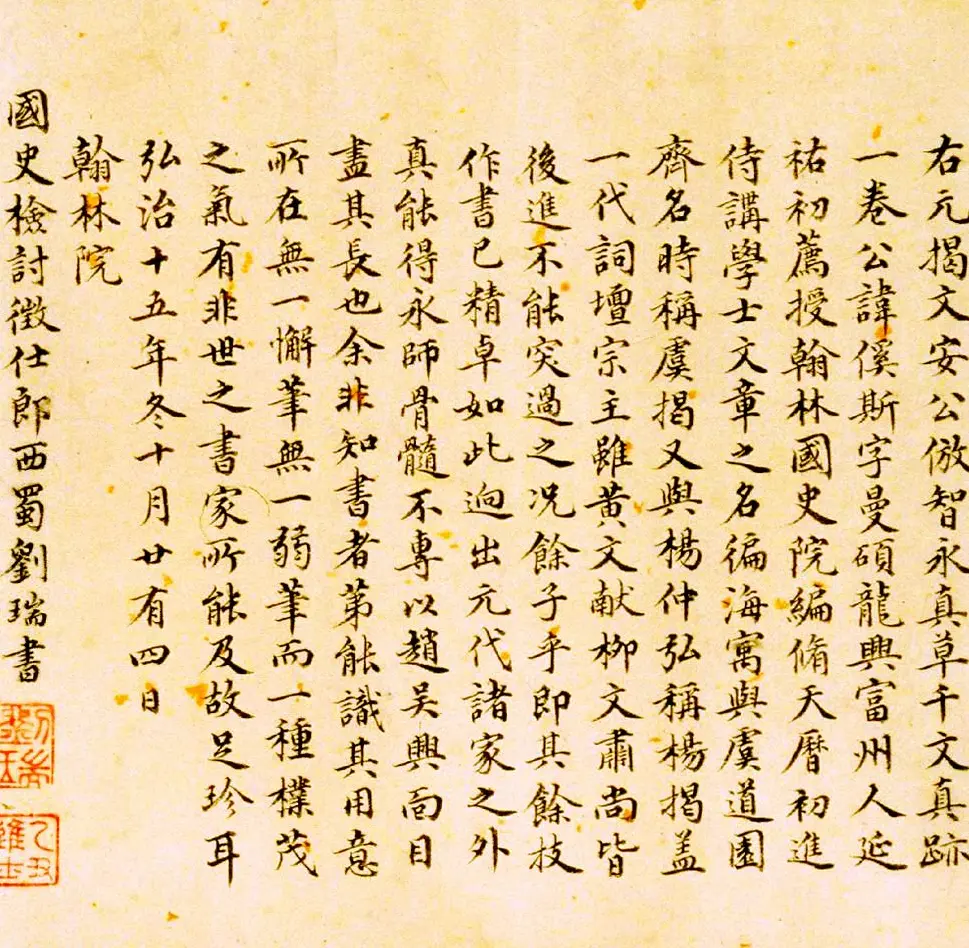 右元揭文安公倣智永真草千文真跡
一卷公諱傒斯字曼碩龍興富州人延
祐初薦授翰林國史院編脩天曆初進
侍講學士文章之名徧海寓與虞道園
齊名時稱虞揭又與楊仲弘稱楊揭蓋
一代詞壇宗主雖黃文献柳文肅尚皆
後進不能突過之况餘子乎即其餘技
作書已精卓如此逈出元代諸家之外
真能得永師骨髓不專以趙吴興面目
盡其長也余非知書者第能識其用意
所在無一懈筆無一弱筆而一種樸茂
之氣有非世之書家所能及故足珍耳
弘治十五年冬十月廿有四日
翰林院
國史檢討徵仕郎西蜀劉瑞書